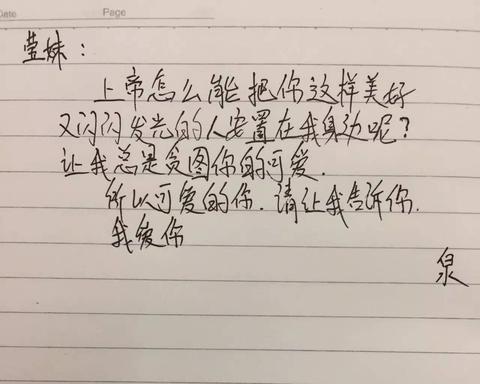 Date
Page
莹妹：
上帝怎么能把你这样美好
又闪闪发光的人安置在我身边呢？
让我总是贪图你的可爱.
所以可爱的你.请让我告诉你.
我爱你
泉